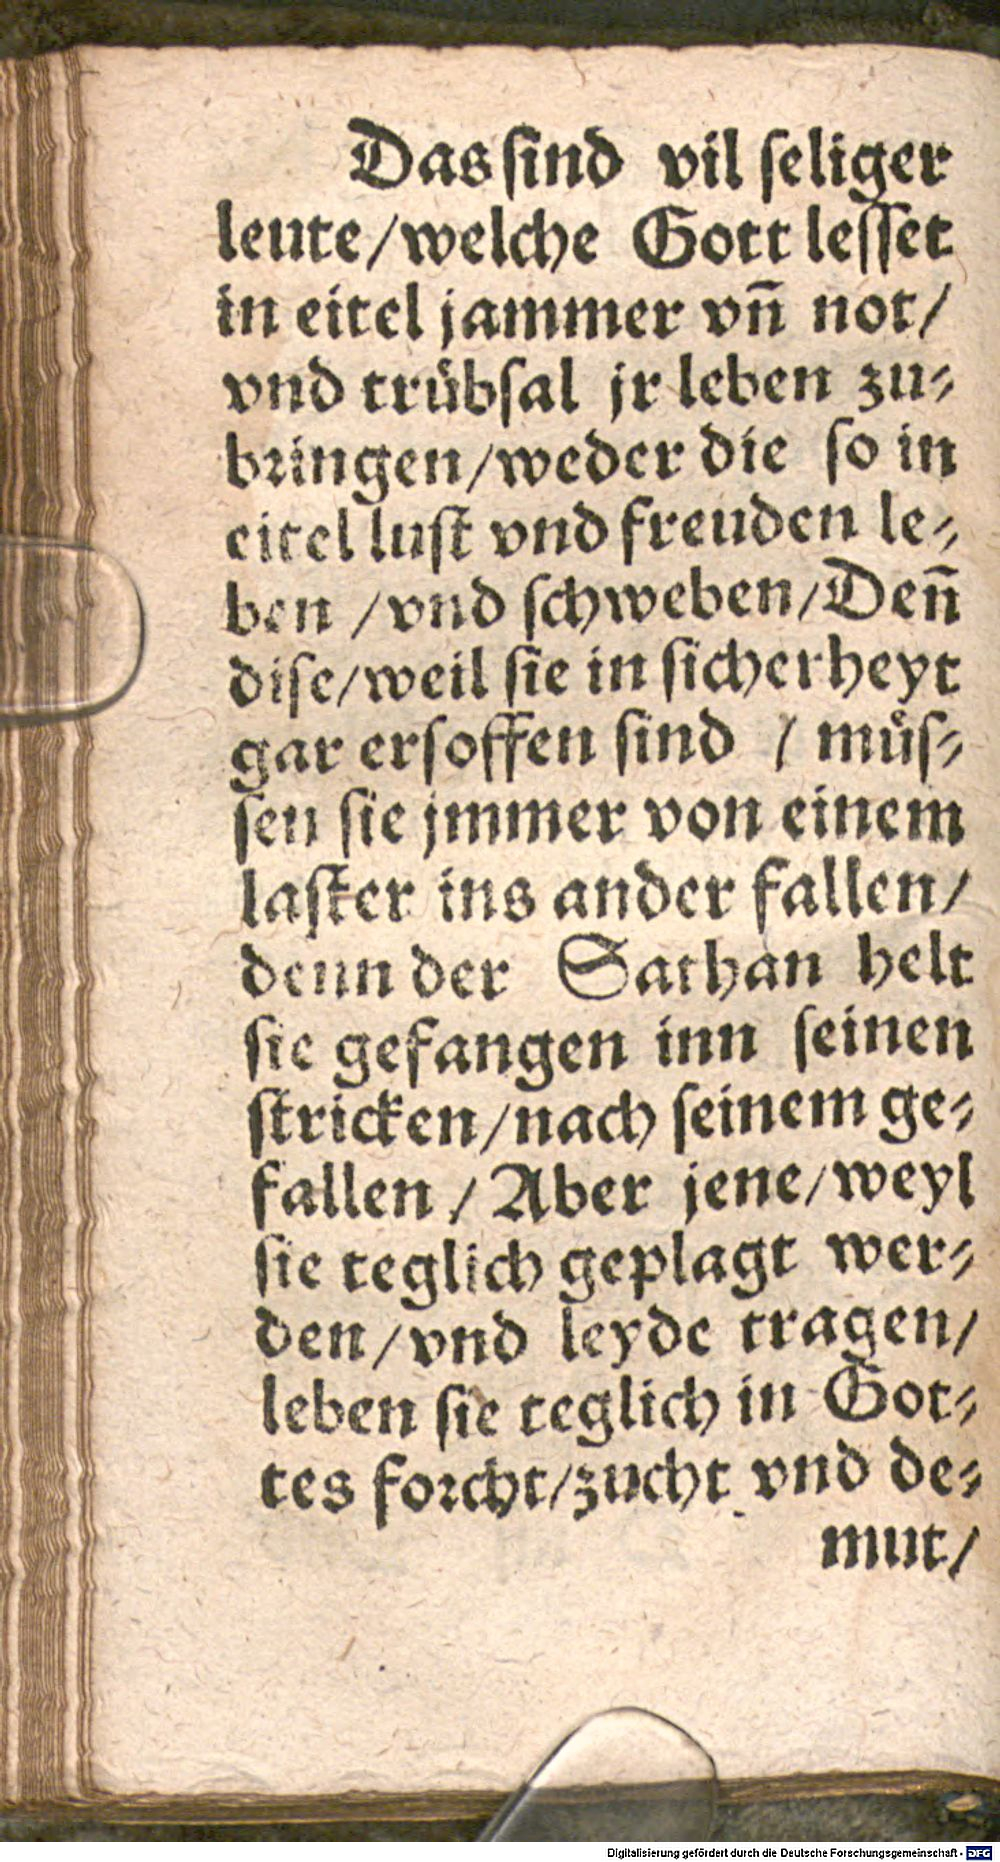 Das sind vil seliger
leute/welche Gott lesset
in eitel jammer vn̄ not/
vnd trübsal jr leben zu⸗
bringen/weder die so in
eitel lust vnd freuden le⸗
ben /vnd schweben/Den̄
dise/weil sie in sicherheyt
gar ersoffen sind / müs⸗
sen sie jmmer von einem
laster ins ander fallen/
denn der Sathan helt
sie gefangen inn seinen
stricken/nach seinem ge⸗
fallen / Aber jene/weyl
sie teglich geplagt wer⸗
den/vnd leyde tragen/
leben sie teglich in Got⸗
tes forcht/zucht vnd de⸗
mut/
Digitalisierung gefördert durch die Deutsche Forschungsgemeinschaft - DFG